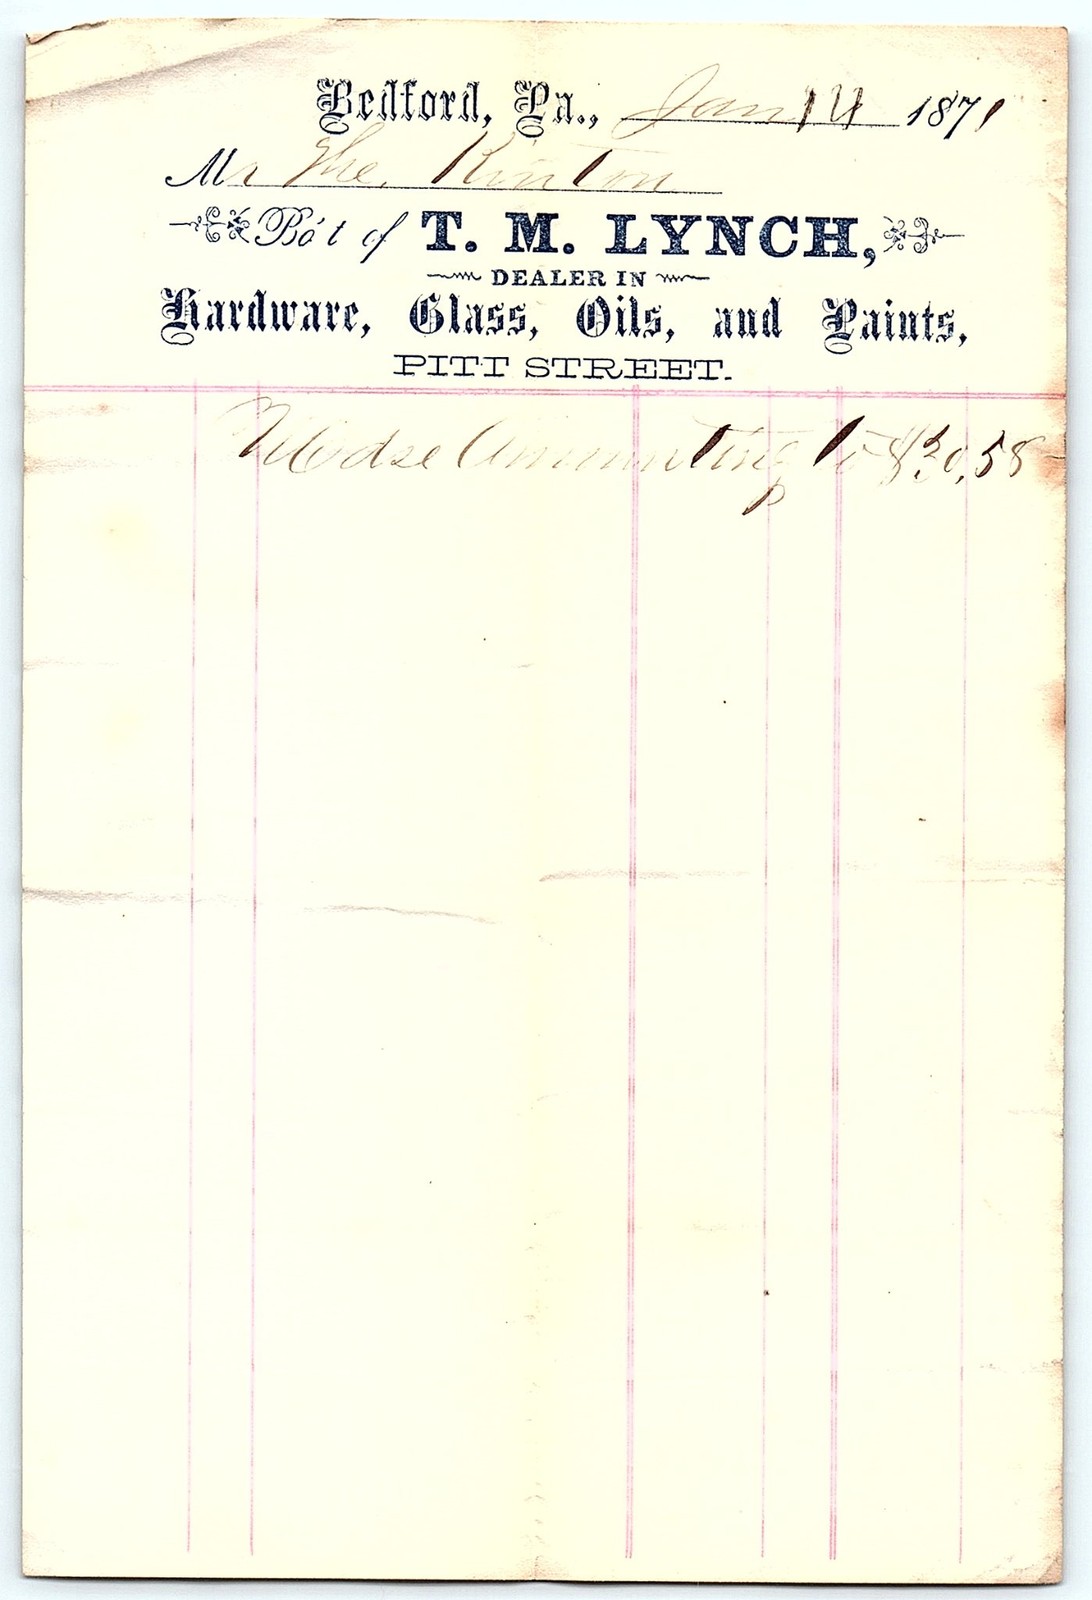 Bedford, Pa., Jan 14 1871
Mr The. Kinton
Bo't of T. M. LYNCH,
DEALER IN
Hardware, Glass, Oils, and Paints,
PITT STREET.
Mdse Ammunting to $30,58